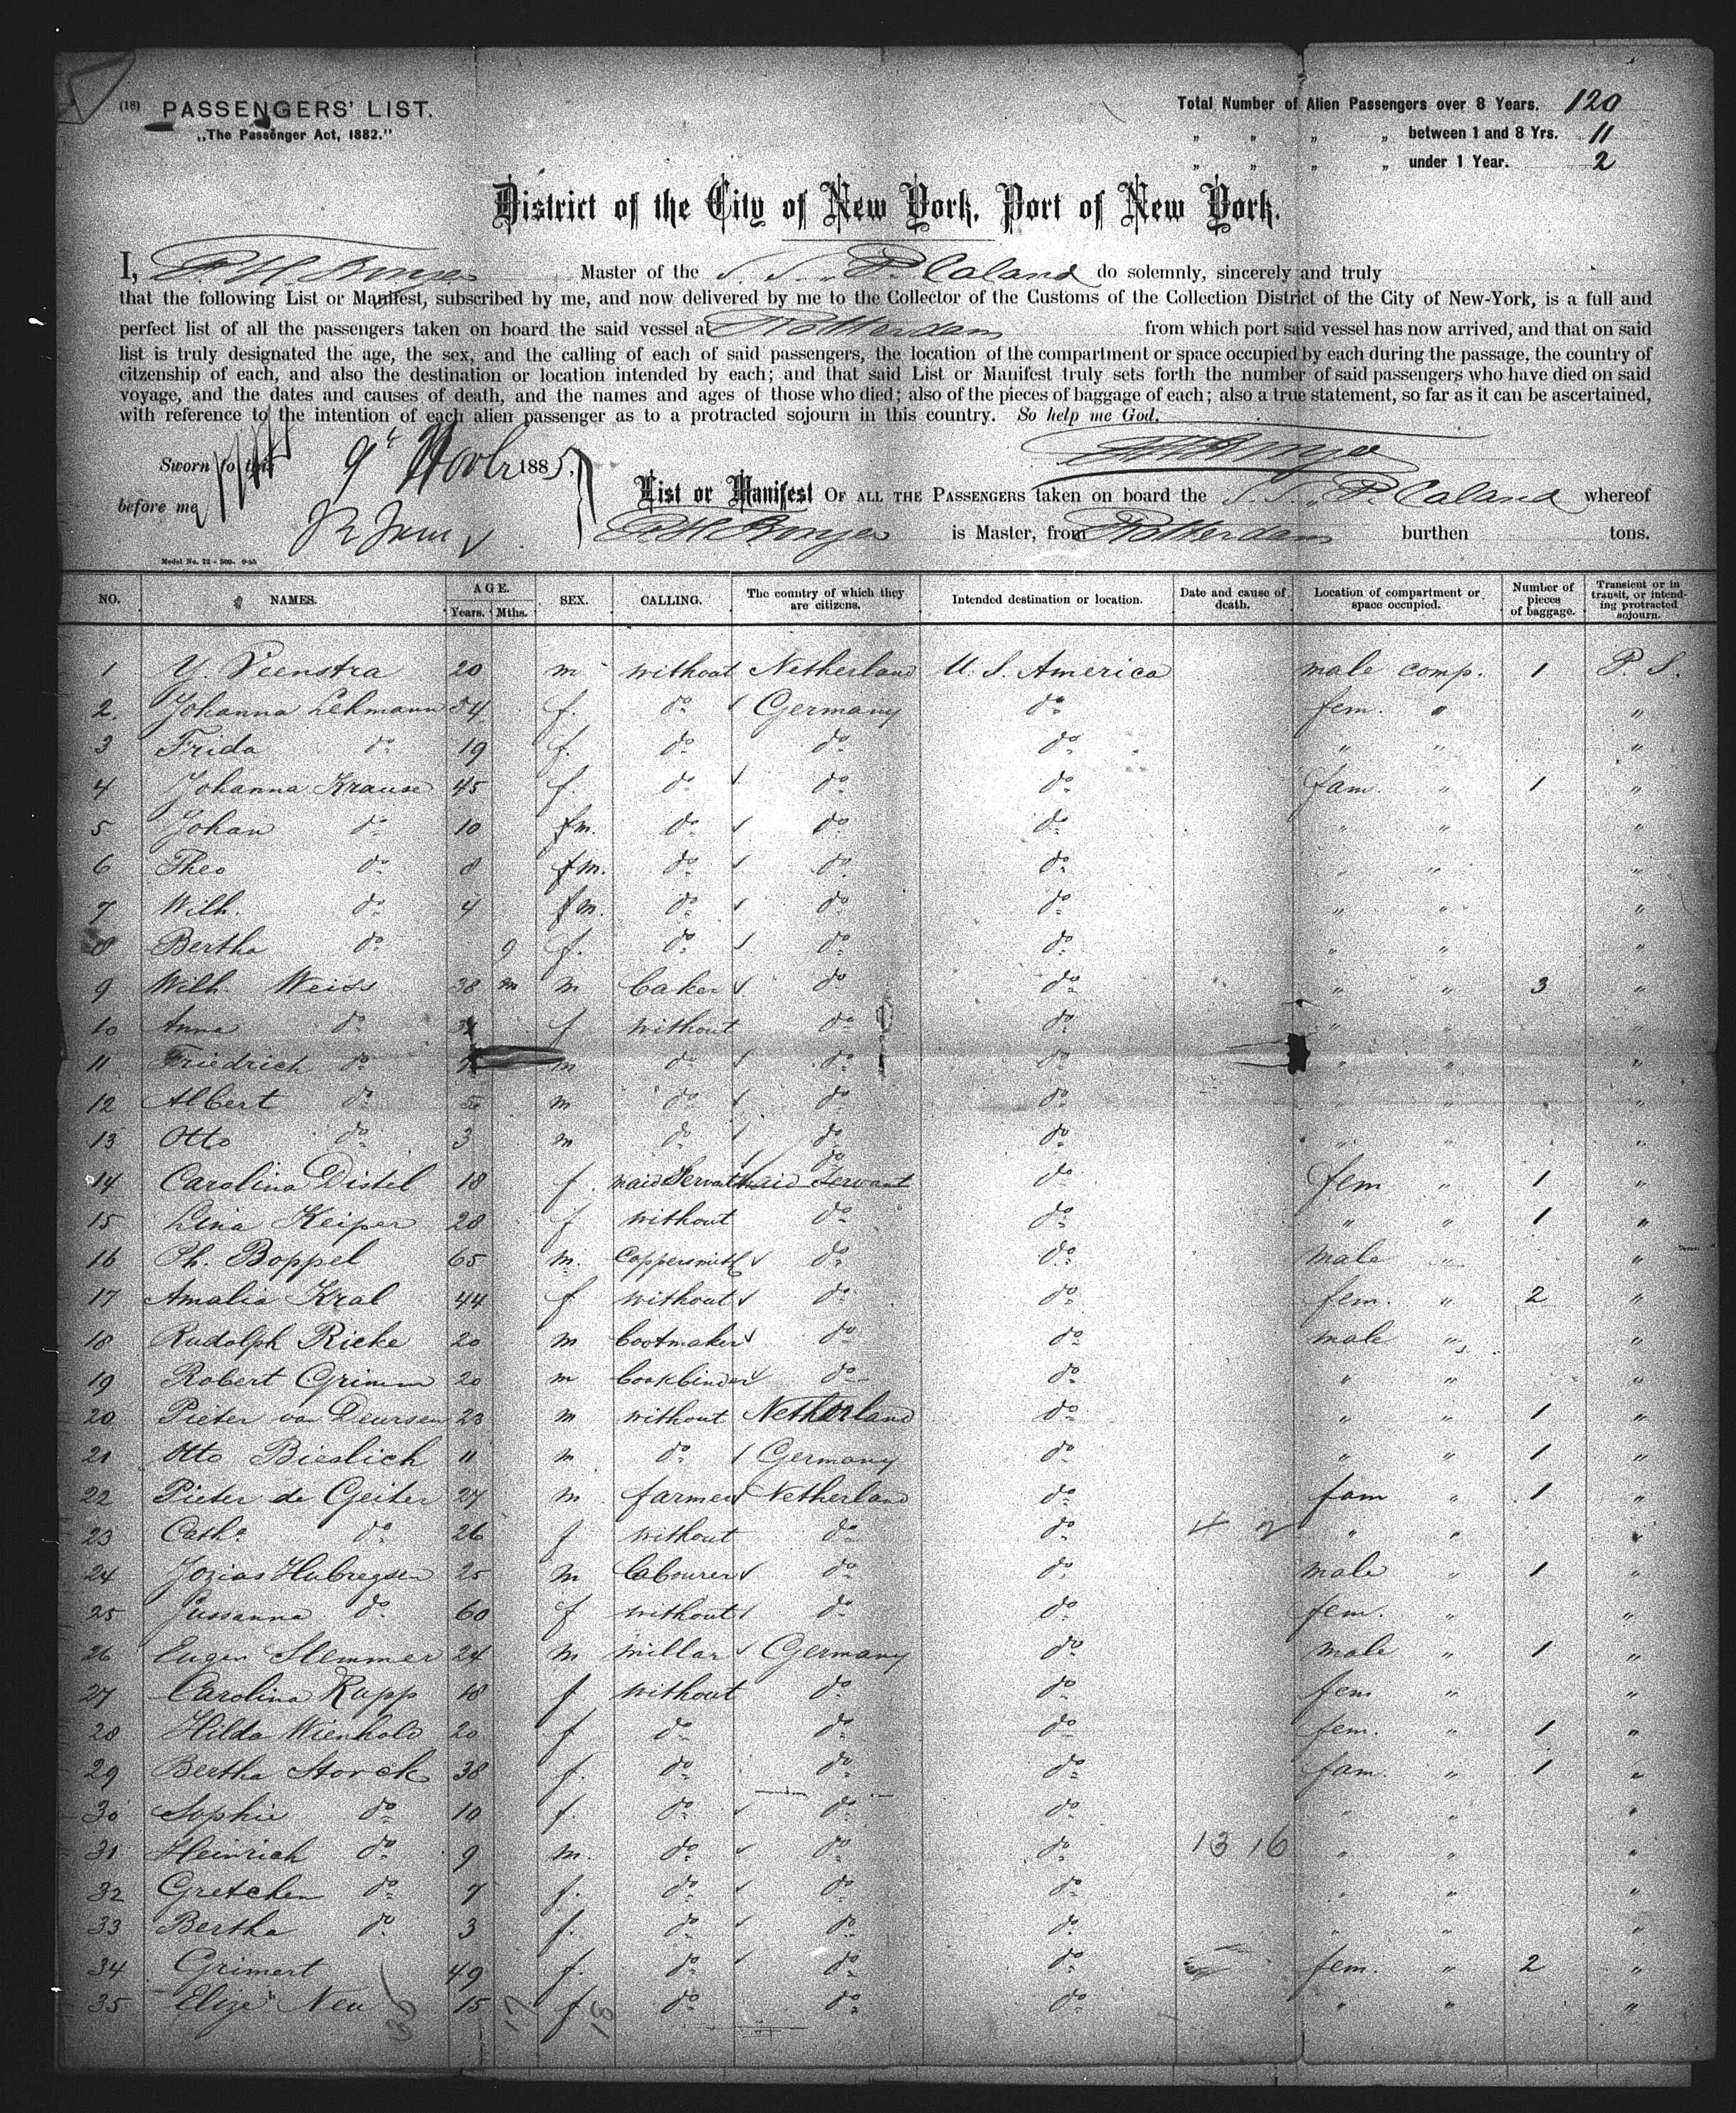 (18) PASSENGERS' LIST.
„The Passenger Act, 1882."
Total Number of Alien Passengers over 8 Years. 120
„ „ „ „ between 1 and 8 Yrs. 11
„ „ „ „ under 1 Year. 2
District of the City of New York, Port of New York.
I, Master of the S. S. „P. Caland do solemnly, sincerely and truly
that the following List or Manifest, subscribed by me, and now delivered by me to the Collector of the Customs of the Collection District of the City of New-York, is a full and
perfect list of all the passengers taken on board the said vessel at Rotterdam from which port said vessel has now arrived, and that on said
list is truly designated the age, the sex, and the calling of each of said passengers, the location of the compartment or space occupied by each during the passage, the country of
citzenship of each, and also the destination or location intended by each; and that said List or Manifest truly sets forth the number of said passengers who have died on said
voyage, and the dates and causes of death, and the names and ages of those who died; also of the pieces of baggage of each; also a true statement, so far as it can be ascertained,
with reference to the intention of each alien passenger as to a protracted sojourn in this country. So help me God.
Sworn to this 9t Novbr 1885,
before me
List or Manifest OF ALL THE PASSENGERS taken on board the S. S. „P. Caland whereof
is Master, from Rotterdam burthen tons.
Model No. 12 - 500. 9-85
NO. NAMES. AGE. Years. Mths. SEX. CALLING. The country of which they are citizens. Intended destination or location. Date and cause of death. Location of compartment or space occupied. Number of pieces of baggage. Transient or in transit, or intending protracted sojourn.
1 Y. Veenstra 20 m without Netherland U. S. America male comp. 1 P. S.
2. Johanna Lehmann 54 f. do Germany do fem. " "
3 Frida do 19 f. do do do " " "
4 Johanna Krause 45 f. do do do fam. " 1 "
5 Johan do 10 m. do do do " " "
6 Theo do 8 m. do do do " " "
7 Wilh. do 4 m. do do do " " "
8 Bertha do 9 f. do do do " " "
9 Wilh. Weiss 38 m m baker do do " " 3 "
10 Anna do f without do do " "
11 Friedrich do m do do do " " "
12 Albert do 5 m do do do " " "
13 Otto do 3 m do do do " " "
14 Carolina Distel 18 f. maid Servant maid Servant do do fem " 1 "
15 Lina Keiper 28 f without do do " " 1 "
16 Ph. Boppel 65 m. Coppersmith do do male " "
17 Amalia Kral 44 f without do do fem. " 2 "
18 Rudolph Rieke 20 m bootmaker do do male " "
19 Robert Grimm 20 m bookbinder do do " " "
20 Pieter van Deursen 23 m without Netherland do " " 1 "
21 Otto Bieslich 11 m do Germany do " " 1 "
22 Pieter de Geiter 27 m farmer Netherland do fam " 1 "
23 Catha do 26 f without do do " " "
24 Jozias Hubregsen 25 m labourer do do male " 1 "
25 Sussanna do 60 f without do do fem. " "
26 Eugen Slemmer 24 m millar Germany do male " 1 "
27 Carolina Rupp 18 f without do do fem " "
28 Hilda Wienhold 20 f do do do fem. " 1 "
29 Bertha Storck 38 f. do do do fam. " 1 "
30 Sophie do 10 f. do do do " " "
31 Heinrich do 9 m. do do do 13 16 " " "
32 Gretchen do 7 f. do do do " " "
33 Bertha do 3 f. do do do " " "
34 Grimert 49 f. do do do fem. " 2 "
35 Elize Neu 15 f do do do " " "